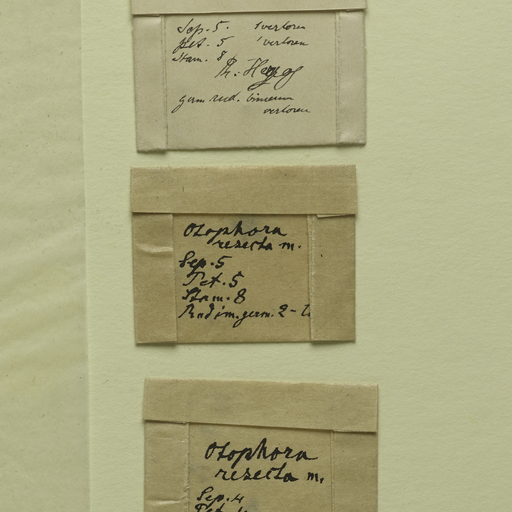 Sep. 5. 1 verloren
Pet. 5 1 verloren
Stam. 8
germ. rud. binum
verloren
Otophora
resecta m.
Sep. 5
Pet. 5
Stam. 8
Rudim. germ. 2-
Otophora
resecta m.
Sep. 4
Pet. 4